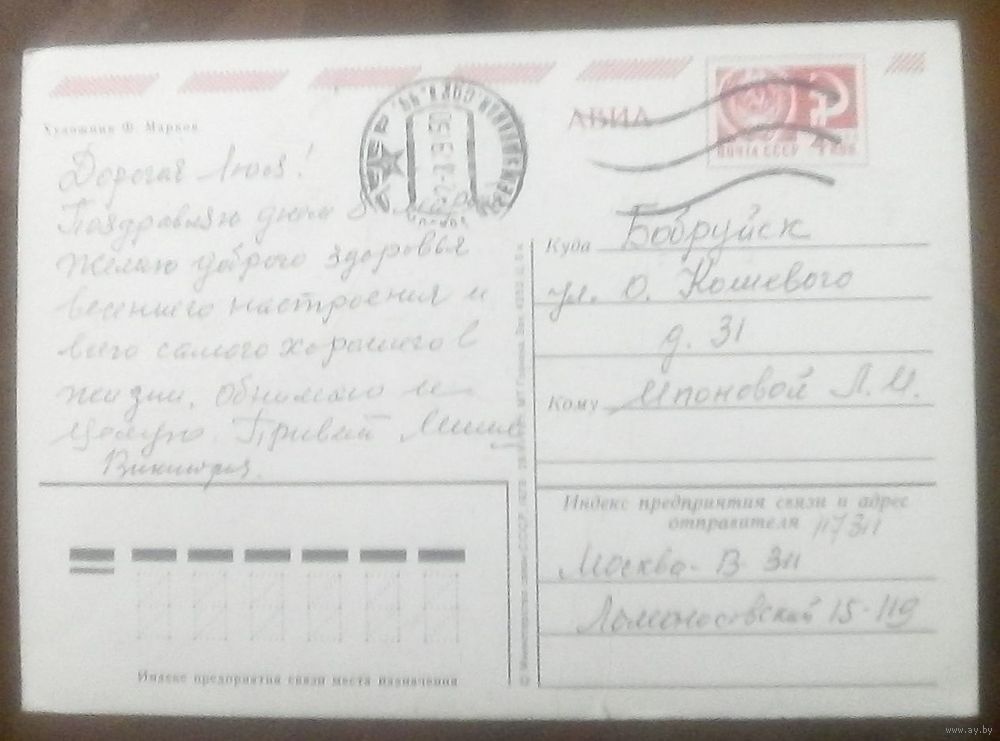 Художник Ф. Марков
АВИА
ПОЧТА СССР
Дорогая Люся!
Поздравляю днем 8 марта
Желаю доброго здоровья
весеннего настроения и
всего самого хорошего в
жизни. Обнимаю и
целую. Привет Мише
Виктория.
Куда Бобруйск
ул. О. Кошевого
д. 31
Кому Ипоновой Л. И.
Индекс предприятия связи и адрес
отправителя 117311
Москва-В-311
Ломоносовский 15-119
Индекс предприятия связи места назначения
www.ay.by